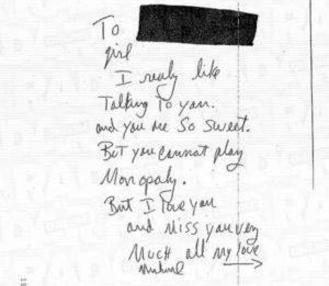 To
girl
I realy like
Talking To you.
and you are So sweet.
But you cannot play
Monopaly.
But I love you
and Miss you very
Much all my love